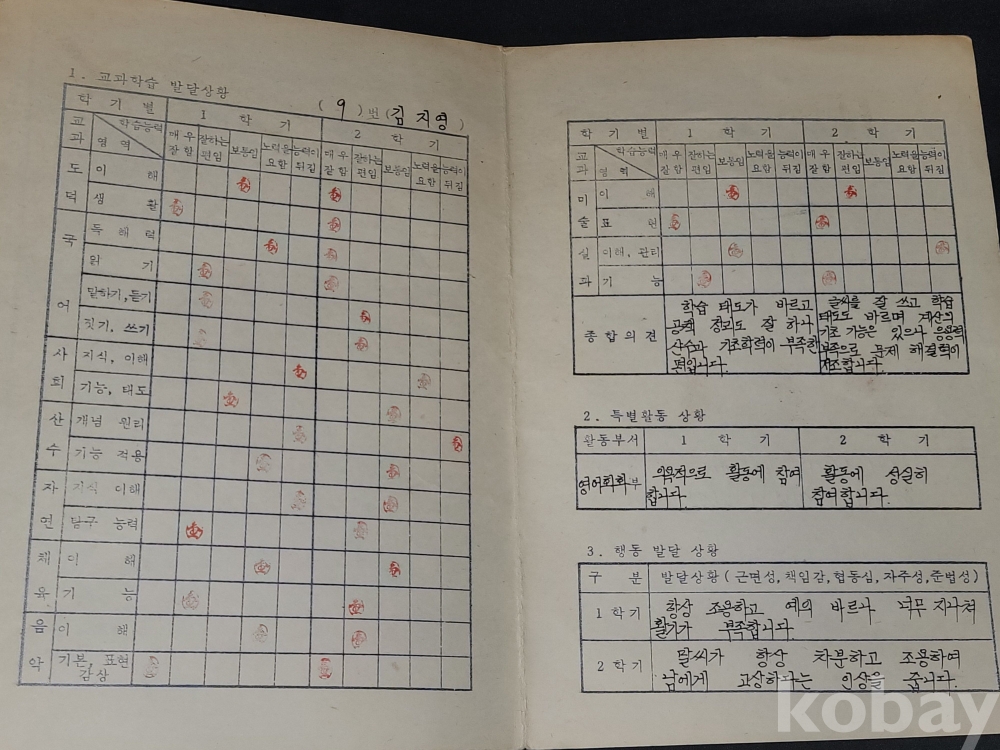 1. 교과학습 발달상황
( 9 ) 번 (김 지영 )
학 기 별 1 학 기 2 학 기
교과 학습능력 영역 매우 잘함 잘하는 편임 보통임 노력을 요함 능력이 뒤짐 매우 잘함 잘하는 편임 보통임 노력을 요함 능력이 뒤짐
도덕 이 해
생 활
국어 독 해 력
읽 기
말하기, 듣기
짓기, 쓰기
사회 지식, 이해
기능, 태도
산수 개념 원리
기능 적용
자연 지식 이해
탐구 능력
체육 이 해
기 능
음악 이 해
기본, 표현
감상
학 기 별 1 학 기 2 학 기
교과 학습능력 영역 매우 잘함 잘하는 편임 보통임 노력을 요함 능력이 뒤짐 매우 잘함 잘하는 편임 보통임 노력을 요함 능력이 뒤짐
미술 이 해
표 현
실과 이해, 관리
기 능
종합의견
학습 태도가 바르고
공책 정리도 잘 하나
산수과 기초학력이 부족한
편입니다.
글씨를 잘 쓰고 학습
태도도 바르며 계산의
기초 기능은 있으나 응용력
부족으로 문제 해결력이
저조합니다.
2. 특별활동 상황
활동부서 1 학 기 2 학 기
영어회화부
의욕적으로 활동에 참여
합니다.
활동에 성실히
참여합니다.
3. 행동 발달 상황
구 분 발달상황 (근면성, 책임감, 협동심, 자주성, 준법성)
1 학기 항상 조용하고 예의 바르나 너무 지나쳐
활기가 부족합니다.
2 학기 말씨가 항상 차분하고 조용하여
남에게 고상하다는 인상을 줍니다.
kobay